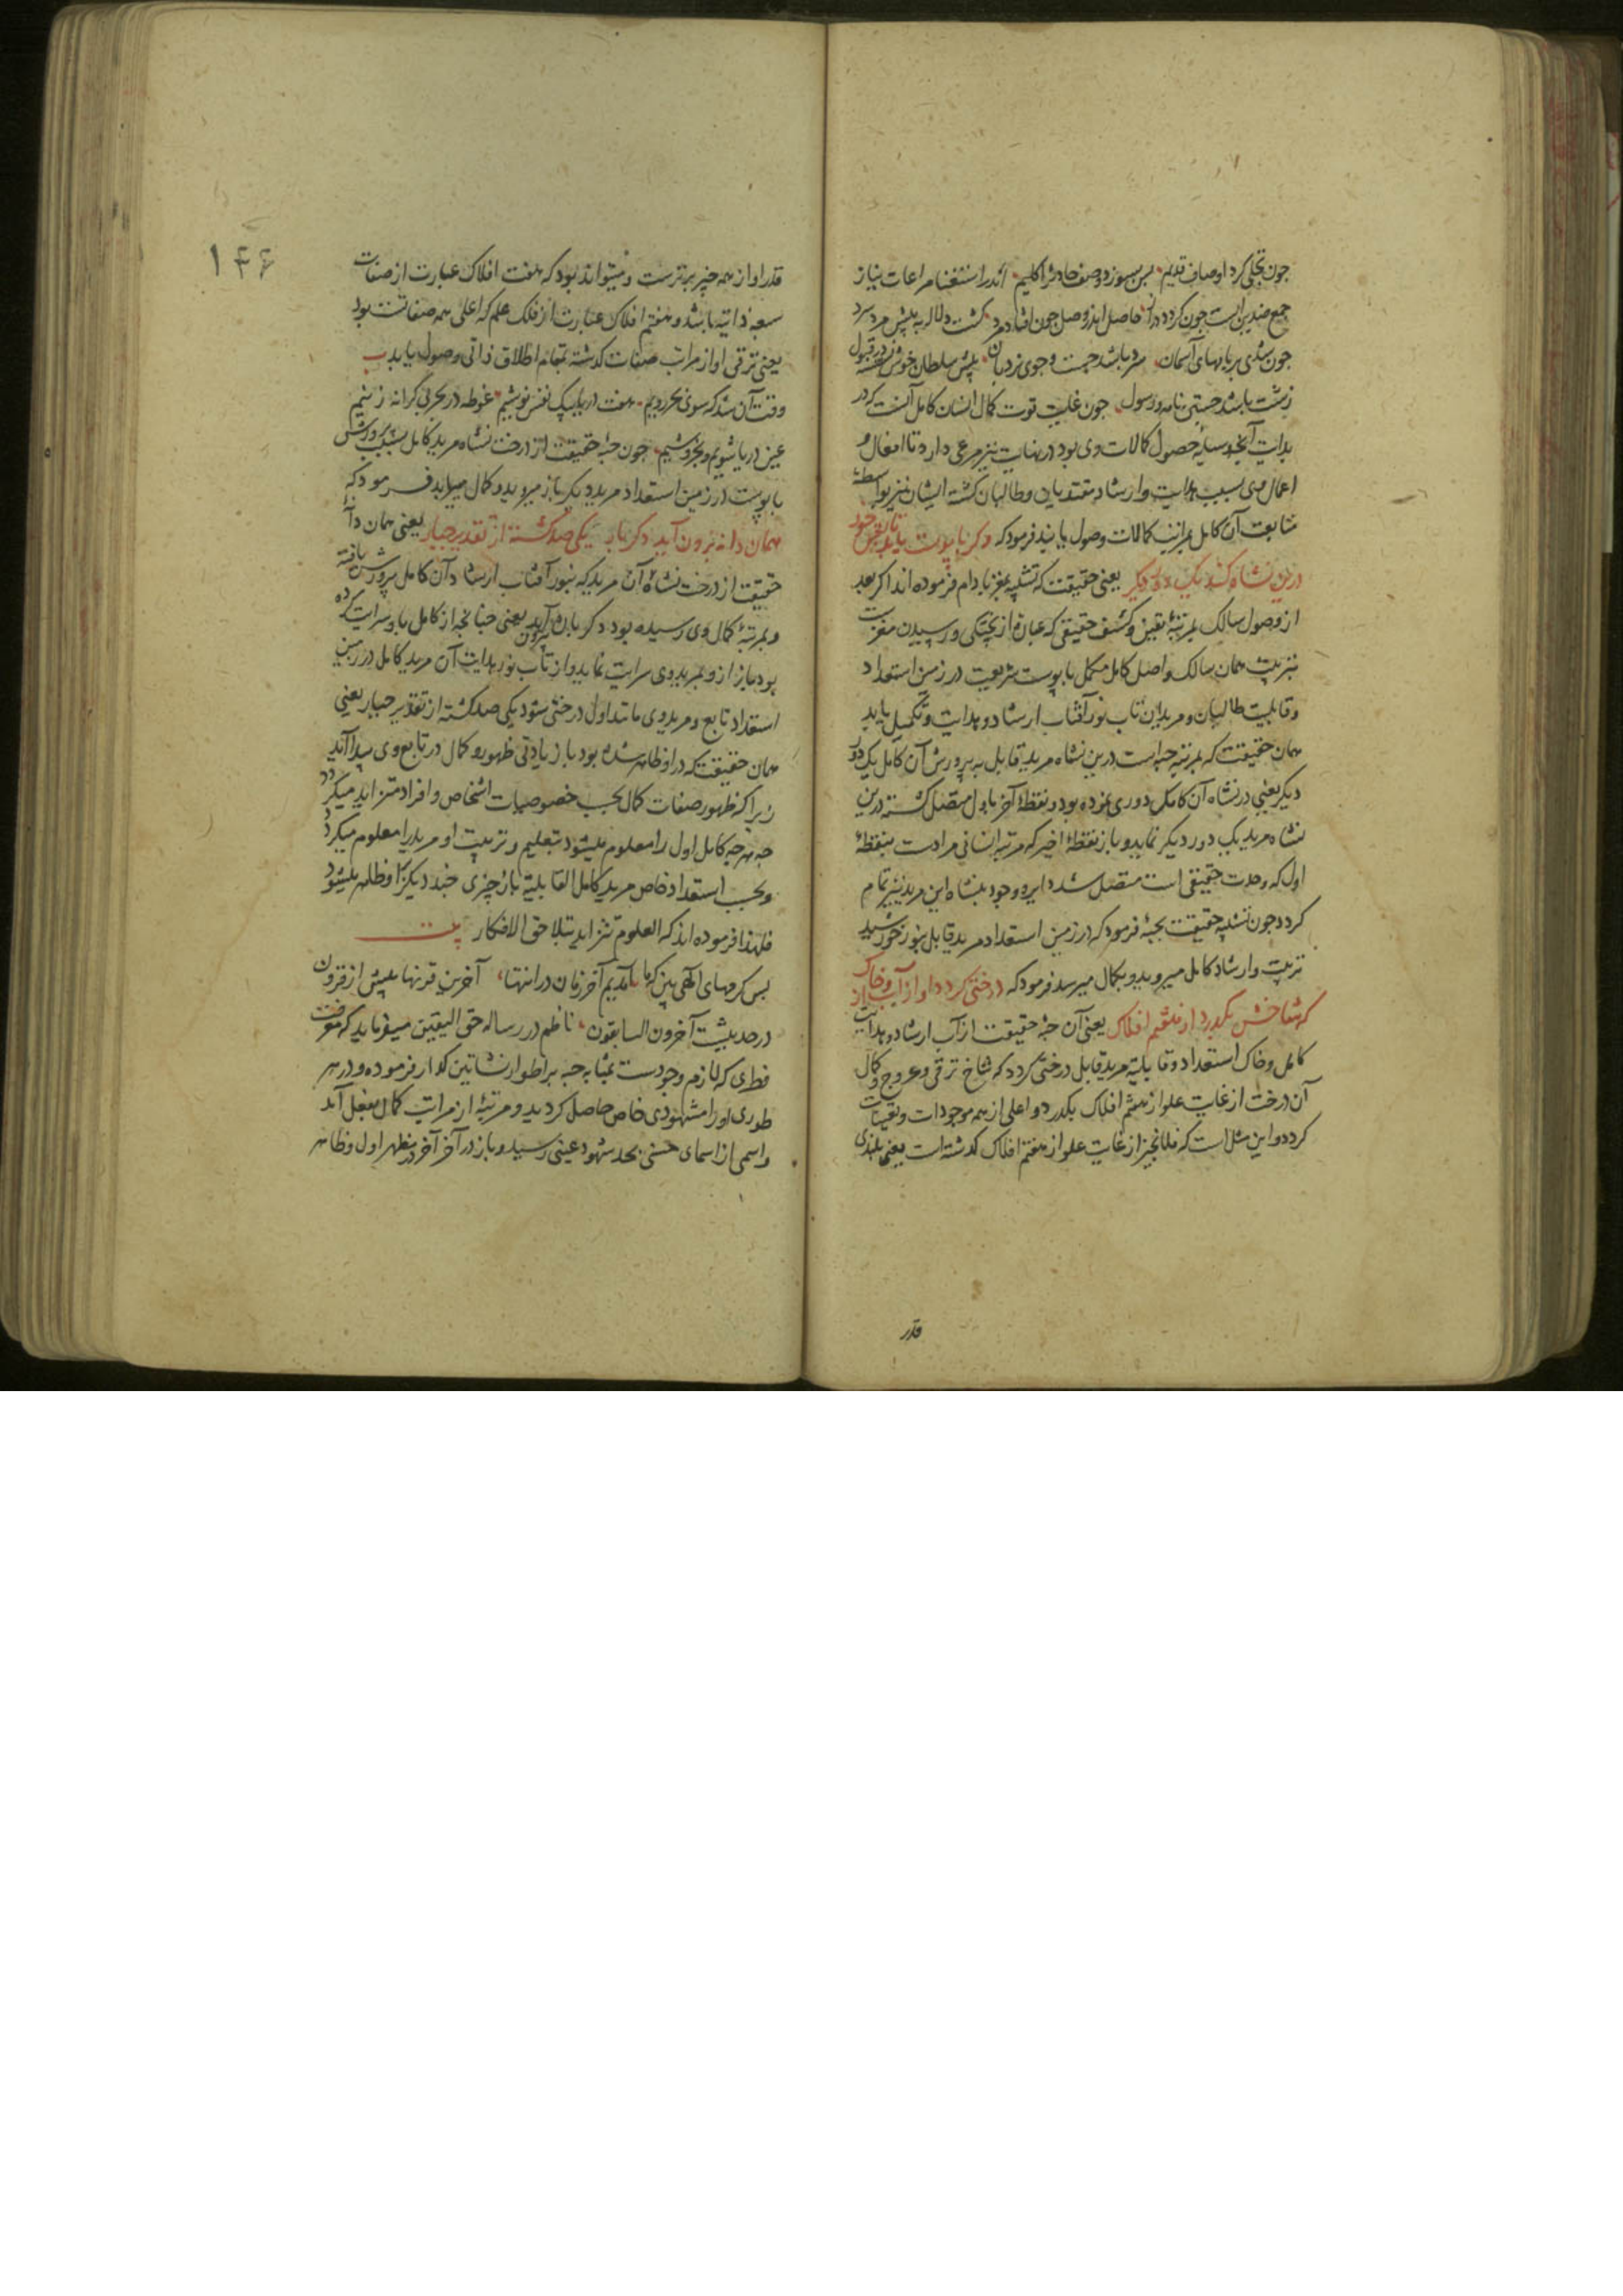 چون تجلی کرد اوصاف قدیم پس بسوزد وصف حادث را کلیم اندر استغنا مراعات نیاز
جمع ضدین است چون گرد و دراز حاصل اندر وصل چون افتاد مرد گشت دلاله به پیش مرد سرد
چون شدی بر بامهای آسمان سرد باشد جست و جوی نردبان پیش سلطان خوش نشسته در قبول
زشت باشد جستن نامه و رسول چون غلبت قوت کمال انسان کامل آنست که در
بدایت آنچه وسیله حصول کمالات وی بود در نهایت نیز مرعی دارد تا افعال و
اعمال وی سبب هدایت و ارشاد مقتدیان و طالبان گشته ایشان نیز بواسطهٔ
متابعت آن کامل بمراتب کمالات وصول یابند فرمود که وگر با پوست یابد تابش خور
درین نشاه کند یک دور دیگر یعنی حقیقت که تشبیه بمغز بادام فرموده اند اگر بعد
از وصول سالک بمرتبهٔ یقین و کشف حقیقی که عبارة از پختگی و رسیدن مغزست
بتربیت همان سالک واصل کامل مکمل با پوست شریعت در زمین استعداد
و قابلیت طالبان و مریدان تاب نور آفتاب ارشاد و هدایت و تکمیل یابد
همان حقیقت که بمرتبه حبه است درین نشاه مرید قابل به پرورش آن کامل یک دور
دیگر یعنی در نشاه آن کامل دوری نموده بود و نقطهٔ آخر باول متصل گشته درین
نشاه مرید یک دور دیگر نماید و باز نقطهٔ اخیر که مرتبه انسانی مرادست بنقطهٔ
اول که وحدت حقیقی است متصل شده دایره وجود بنشاه این مرید نیز تمام
گردد چون تشبیه حقیقت بحبه فرمود که در زمین استعداد مرید قابل بنور خورشید
تربیت و ارشاد کامل میروید و بکمال میرسد فرمود که درختی گردد او از آب و خاک
که شاخش بگذرد از هفتم افلاک یعنی آن حبهٔ حقیقت از آب ارشاد و هدایت
کامل و خاک استعداد و قابلیة مرید قابل درختی گردد که شاخ ترقی و عروج و کمال
آن درخت از غایت علو از هفتم افلاک بگذرد و اعلی از همه موجودات و تعینات
گردد و این مثل است که فلانچیز از غایت علو از هفتم افلاک گذشته است یعنی بلندی
قدر
۱۴۶
قدر او از همه چیز برترست و میتواند بود که هفت افلاک عبارت از صفات
سبعه ذاتیه باشد و هفتم افلاک عبارت از فلک علم که اعلی همه صفاتست بود
یعنی ترقی او از مراتب صفات گذشته بمقام اطلاق ذاتی وصول یابد
وقت آن شد که سوی بحر رویم هفت دریا بیک نفس نوشیم غوطه در بحر بی کرانه زنیم
عین دریا شویم و بخروشیم چون حبهٔ حقیقت از درخت نشاه مرید کامل بسبب پرورش
با پوست در زمین استعداد مرید دیگر باز میروید و کمال میابد فرمود که
همان دانه برون آید دگر بار یکی صد گشته از تقدیر جبار یعنی همان دانهٔ
حقیقت از درخت نشاه آن مرید که بنور آفتاب ارشاد آن کامل پرورش یافته
و بمرتبهٔ کمال وی رسیده بود دگر بار برون آید یعنی چنانچه از کامل باو سرایت کرده
بود باز ازو بمرید وی سرایت نماید و از تاب نور هدایت آن مرید کامل در زمین
استعداد تابع و مرید وی مانند اول درختی شود یکی صد گشته از تقدیر جبار یعنی
همان حقیقت که در او ظاهر شده بود باز زیادتی ظهور و کمال در تابع وی پیدا آید
زیرا که ظهور صفات کمال بحسب خصوصیات اشخاص و افراد متزاید میگردد
چه هر چه کامل اول را معلوم میشود بتعلیم و تربیت او مرید را معلوم میگردد
و بحسب استعداد خاص مرید کامل القابلیة باز چیزی چند دیگر او ظاهر میشود
فلهذا فرموده اند که العلوم تتزاید بتلاحق الافکار بیت
پس کرمهای الهی بین که ما آمدیم آخر زمان در انتها آخرین قرنها پیش از قرون
در حدیث آخرون السابقون ناظم در رساله حق الیقین میفرماید که معرفت
فطری که لازم وجودست بمثابه حبه بر اطوار نشاتین گذار فرموده و در هر
طوری او را مشهودی خاص حاصل گردید و مرتبهٔ از مراتب کمال بفعل آمد
و اسمی از اسمای حسنی بحد شهود عینی رسید و باز در آخر آخر در مظهر اول و ظاهر